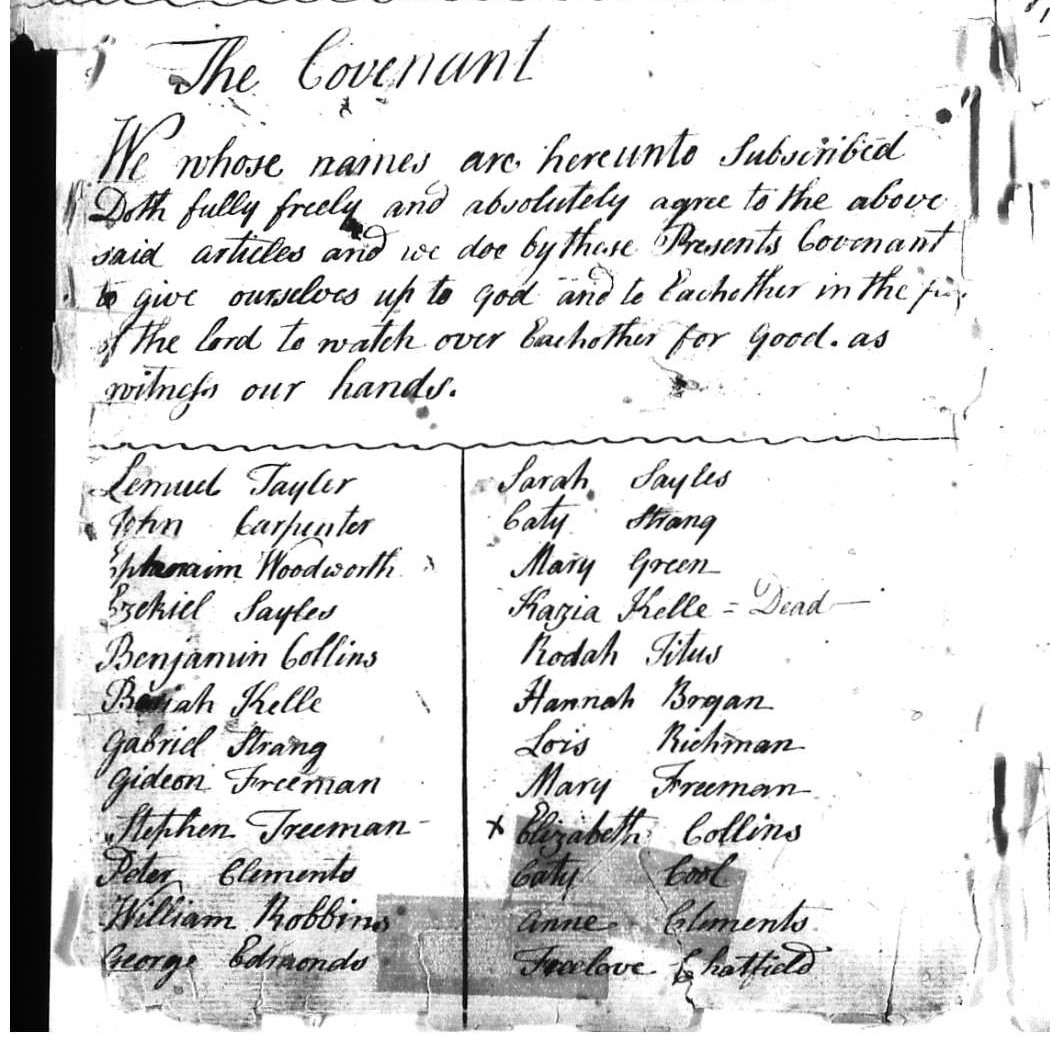 The Covenant
We whose names are hereunto Subscribed
Doth fully freely and absolutely agree to the above
said articles and we doe by these Presents Covenant
to give ourselves up to god and to Eachother in the
of the lord to watch over Eachother for good. as
witness our hands.
Lemuel Tayler
John Carpenter
Ephraim Woodworth
Ezekiel Sayles
Benjamin Collins
Beriah Kelle
Gabriel Strang
Gideon Freeman
Stephen Treeman
Peter Clements
William Robbins
George Edmonds
Sarah Sayles
Caty Strang
Mary Green
Kazia Kelle = Dead
Rodah Titus
Hannah Bryan
Lois Richman
Mary Freeman
x Elizabeth Collins
Caty Cool
anne Clements
Freelove Chatfield